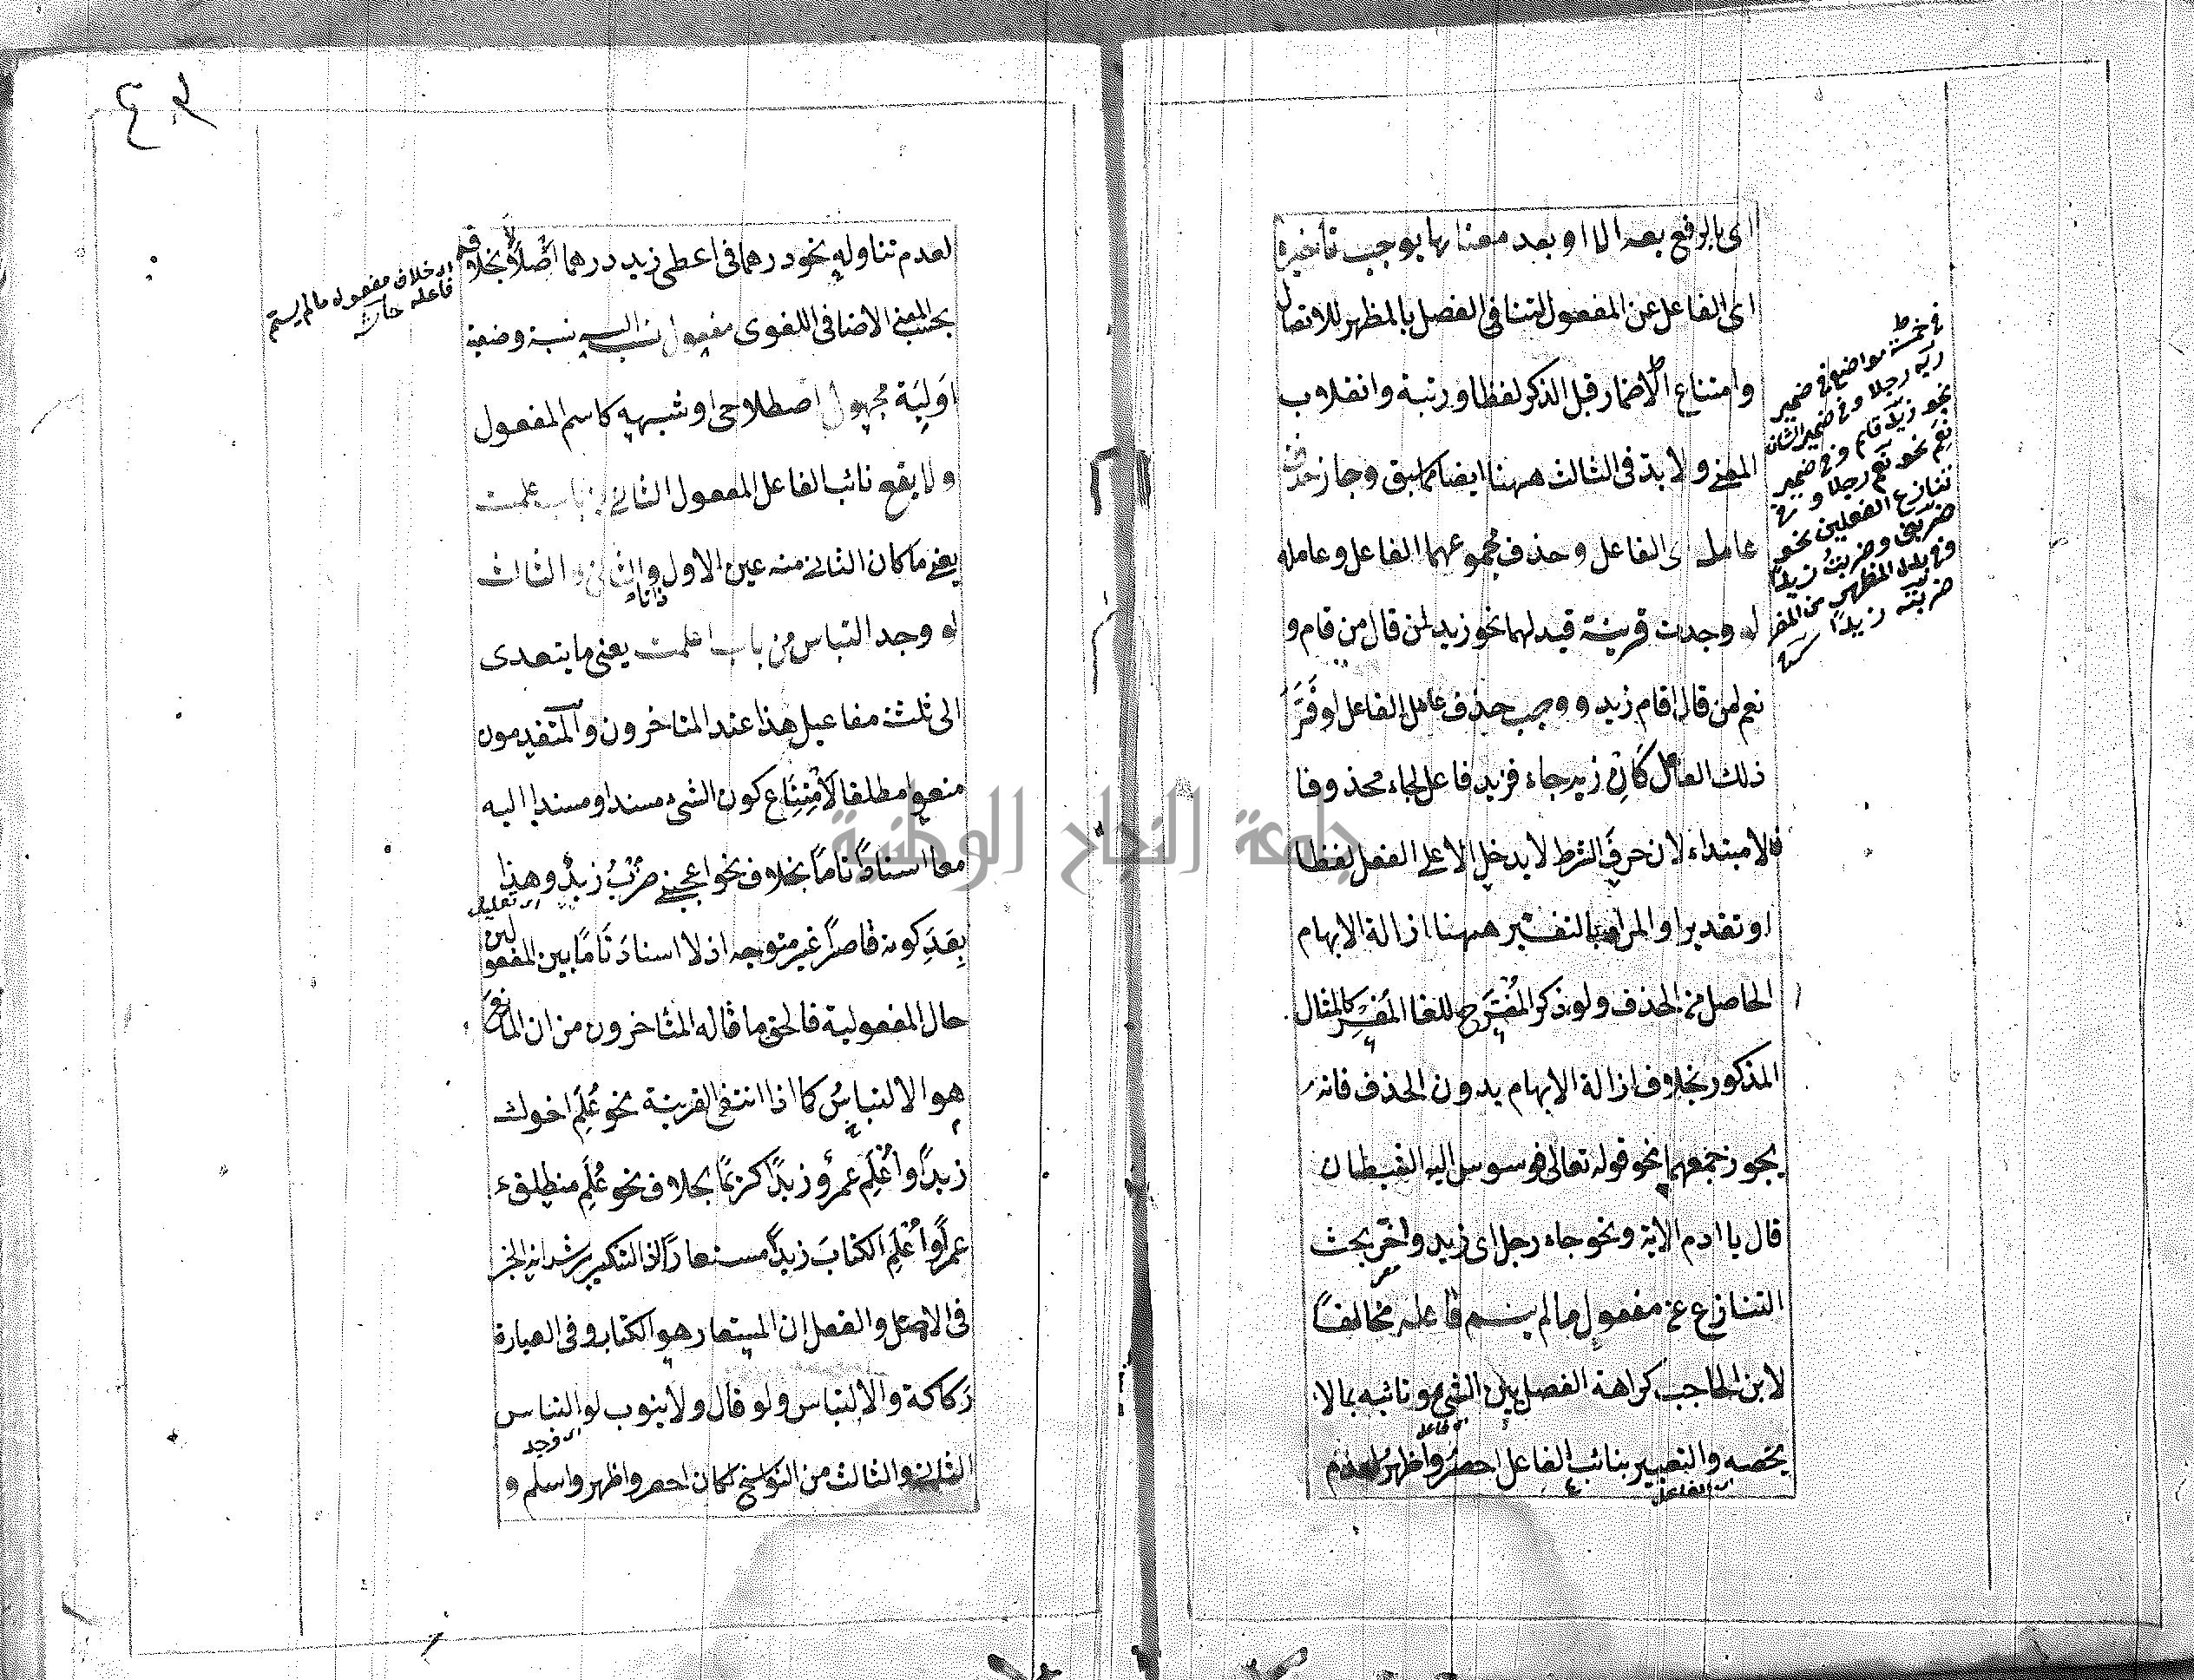 اى بالرفع بعد الا او بعد معناها يوجب تأخيره
اى الفاعل عن المفعول لتنافى الفصل بالمظهر للاتصال
وامتناع الاضمار قبل الذكر لفظا ورتبة وانقلاب
المعنى ولا بد فى الثالث ههنا ايضا كما سبق وجاز حذف
عامل اى الفاعل وحذف مجموعهما الفاعل وعامله
لو وجدت قرينة قيد لهما نحو زيد لمن قال من قام و
نعم لمن قال اقام زيد ووجب حذف عامل الفاعل لو فَسَّرَ
ذلك العامل كان زيد جاء فزيد فاعل لجاء محذوفا
لا مبتداء لان حرفى الشرط لا يدخل الا على الفعل لفظا
او تقديرا والمراد بالتفسير ههنا ازالة الابهام
الحاصل من الحذف ولو ذكر المُفَسَّر للغا المُفَسِّر كالمثال
المذكور بخلاف ازالة الابهام بدون الحذف فانه
يجوز جمعهما نحو قوله تعالى فوسوس اليه الشيطان
قال يا ادم الاية ونحو جاء رجل اى زيد واخر بحث
التنازع عن مفعول ما لم يسم فاعله مخالفًا
لابن الحاجب كراهة الفصل بين الشئ ونائبه بما لا
يخصه والتعبير بنائب الفاعل احصر واظهر لعدم
اى الفاعل
فى خمسة مواضع فى ضمير
ربه رجلا وفى ضمير الشان
نحو زيد قام وفى ضمير
نعم نحو نعم رجلا وفى
تنازع الفعلين نحو
ضربنى وضربت زيدًا
وفى بدل المظهر من المضمر
ضربته زيدًا
٤٢
لعدم تناوله نحو درهما فى اعطى زيد درهما اصلا بخلاف
اى خلاف مفعول ما لم يسم
فاعله
بحسب المعنى الاضافى اللغوى مفعول نسب اليه نسبة وضعية
اوَلِيَة مجهول اصطلاحى او شبهه كاسم المفعول
ولا يقع نائب الفاعل المفعول الثانى من باب علمت
يعنى ما كان الثانى منه عين الاول والثانى والثالث
ذاتا
لو وجد التباس من باب اعلمت يعنى ما يتعدى
الى ثلثة مفاعيل هذا عند المتاخرون والمتقدمون
منعوا مطلقا لامتِناع كون الشئ مسندا ومسندا اليه
معا اسنادًا تامًا بخلاف نحو اعجبنى ضَرْبُ زيدٍ وهذا
بعد كونه قاصرًا غير متوجه اذ لا اسنادَ تَامًا بين المفعولين
حال المفعولية فالحق ما قاله المتاخرون من ان المانع
هو الالتباسُ كما اذا انتفى القرينة نحو عُلِمَ اخوك
زيدًا واُعْلِمَ عمرٌو زيدًا كريمًا بخلاف نحو عُلِمَ منطلقٌ
عمرًا واُعْلِمَ الكتابَ زيدًا مستعارًا اذ التنكير يرشد انه الخبر
فى الاصل والفعل ان المستعار هو الكتاب وفى العبارة
رَكاكة والالتباس ولو قال ولا ينوب لو التباس
اى وجد
الثانى والثالث من النواسخ لكان احصر واظهر واسلم و
جامعة النجاح الوطنية